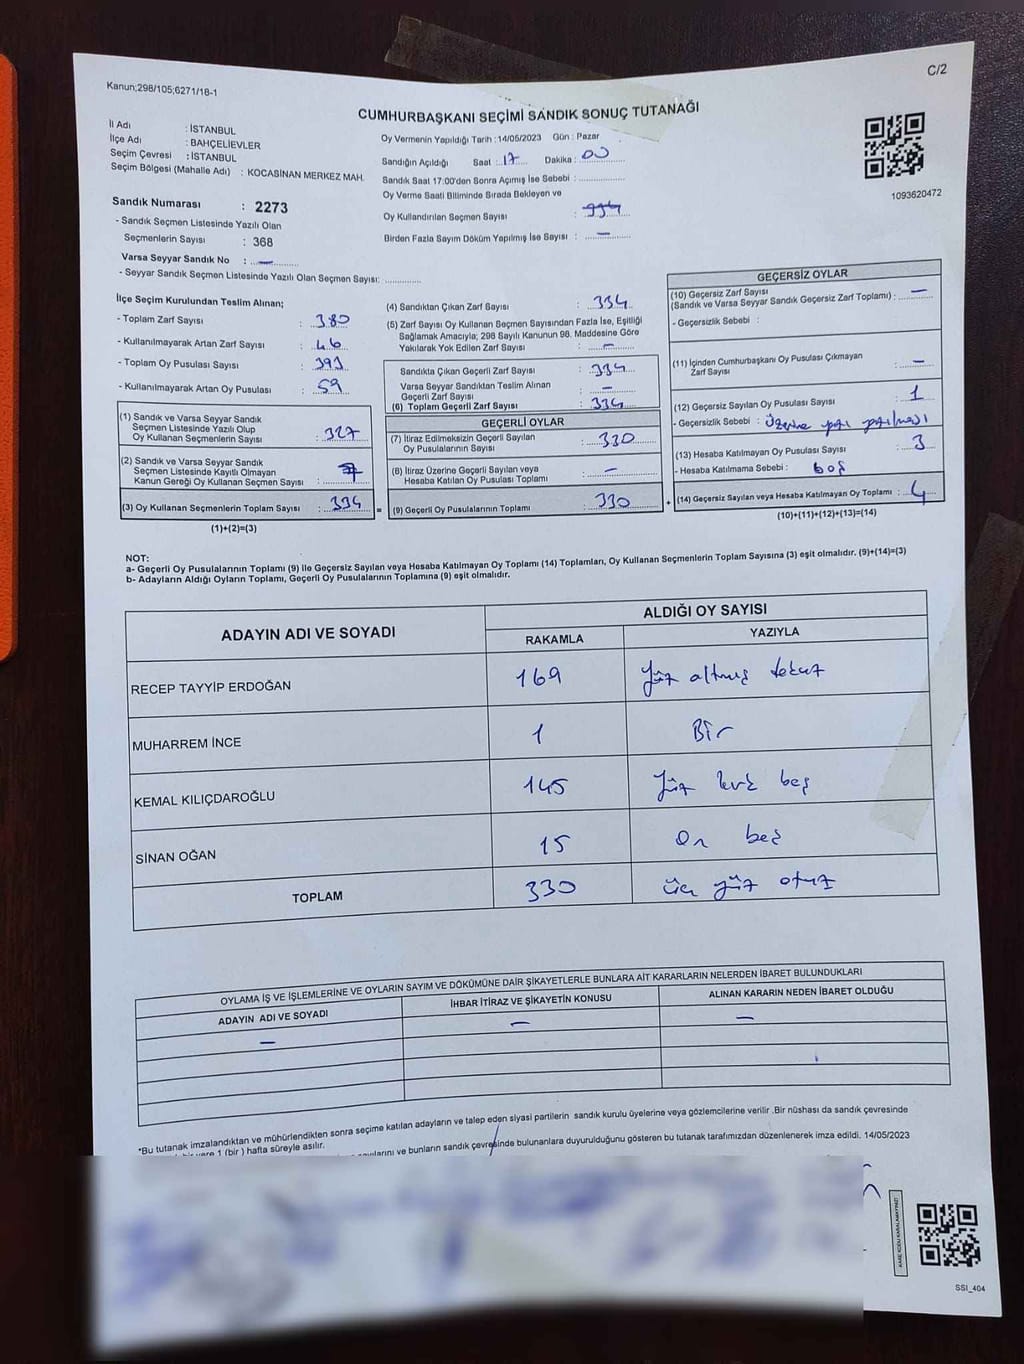 C/2
Kanun;298/105;6271/18-1
CUMHURBAŞKANI SEÇİMİ SANDIK SONUÇ TUTANAĞI
İl Adı : İSTANBUL
İlçe Adı : BAHÇELİEVLER
Seçim Çevresi : İSTANBUL
Seçim Bölgesi (Mahalle Adı) : KOCASİNAN MERKEZ MAH.
Sandık Numarası : 2273
- Sandık Seçmen Listesinde Yazılı Olan
Seçmenlerin Sayısı : 368
Varsa Seyyar Sandık No : —
- Seyyar Sandık Seçmen Listesinde Yazılı Olan Seçmen Sayısı:
Oy Vermenin Yapıldığı Tarih : 14/05/2023 Gün : Pazar
Sandığın Açıldığı Saat : 17 Dakika : 00
Sandık Saat 17:00'den Sonra Açımış İse Sebebi :
Oy Verme Saati Bitiminde Sırada Bekleyen ve
Oy Kullandırılan Seçmen Sayısı :
Birden Fazla Sayım Döküm Yapılmış İse Sayısı : —
1093620472
İlçe Seçim Kurulundan Teslim Alınan;
- Toplam Zarf Sayısı : 380
- Kullanılmayarak Artan Zarf Sayısı : 46
- Toplam Oy Pusulası Sayısı : 393
- Kullanılmayarak Artan Oy Pusulası : 59
(1) Sandık ve Varsa Seyyar Sandık
Seçmen Listesinde Yazılı Olup
Oy Kullanan Seçmenlerin Sayısı : 327
(2) Sandık ve Varsa Seyyar Sandık
Seçmen Listesinde Kayıtlı Olmayan
Kanun Gereği Oy Kullanan Seçmen Sayısı : 7
(3) Oy Kullanan Seçmenlerin Toplam Sayısı : 334 =
(1)+(2)=(3)
(4) Sandıktan Çıkan Zarf Sayısı : 334
(5) Zarf Sayısı Oy Kullanan Seçmen Sayısından Fazla İse, Eşitliği
Sağlamak Amacıyla; 298 Sayılı Kanunun 98. Maddesine Göre
Yakılarak Yok Edilen Zarf Sayısı : —
Sandıkta Çıkan Geçerli Zarf Sayısı : 334
Varsa Seyyar Sandıktan Teslim Alınan
Geçerli Zarf Sayısı : —
(6) Toplam Geçerli Zarf Sayısı : 334
GEÇERLİ OYLAR
(7) İtiraz Edilmeksizin Geçerli Sayılan
Oy Pusulalarının Sayısı : 330
(8) İtiraz Üzerine Geçerli Sayılan veya
Hesaba Katılan Oy Pusulası Toplamı : —
(9) Geçerli Oy Pusulalarının Toplamı : 330 +
GEÇERSİZ OYLAR
(10) Geçersiz Zarf Sayısı
(Sandık ve Varsa Seyyar Sandık Geçersiz Zarf Toplamı) : —
- Geçersizlik Sebebi :
(11) İçinden Cumhurbaşkanı Oy Pusulası Çıkmayan
Zarf Sayısı : —
(12) Geçersiz Sayılan Oy Pusulası Sayısı : 1
- Geçersizlik Sebebi : üzerine yazı yazılması
(13) Hesaba Katılmayan Oy Pusulası Sayısı : 3
- Hesaba Katılmama Sebebi : boş
(14) Geçersiz Sayılan veya Hesaba Katılmayan Oy Toplamı : 4
(10)+(11)+(12)+(13)=(14)
NOT:
a- Geçerli Oy Pusulalarının Toplamı (9) ile Geçersiz Sayılan veya Hesaba Katılmayan Oy Toplamı (14) Toplamları, Oy Kullanan Seçmenlerin Toplam Sayısına (3) eşit olmalıdır. (9)+(14)=(3)
b- Adayların Aldığı Oyların Toplamı, Geçerli Oy Pusulalarının Toplamına (9) eşit olmalıdır.
ADAYIN ADI VE SOYADI ALDIĞI OY SAYISI
RAKAMLA YAZIYLA
RECEP TAYYİP ERDOĞAN 169 Yüz altmış dokuz
MUHARREM İNCE 1 Bir
KEMAL KILIÇDAROĞLU 145 Yüz kırk beş
SİNAN OĞAN 15 On beş
TOPLAM 330 üç yüz otuz
OYLAMA İŞ VE İŞLEMLERİNE VE OYLARIN SAYIM VE DÖKÜMÜNE DAİR ŞİKAYETLERLE BUNLARA AİT KARARLARIN NELERDEN İBARET BULUNDUKLARI
ADAYIN ADI VE SOYADI İHBAR İTİRAZ VE ŞİKAYETİN KONUSU ALINAN KARARIN NEDEN İBARET OLDUĞU
— — —
*Bu tutanak imzalandıktan ve mühürlendikten sonra seçime katılan adayların ve talep eden siyasi partilerin sandık kurulu üyelerine veya gözlemcilerine verilir .Bir nüshası da sandık çevresinde
yere 1 (bir ) hafta süreyle asılır.
ve bunların sandık çevresinde bulunanlara duyurulduğunu gösteren bu tutanak tarafımızdan düzenlenerek imza edildi. 14/05/2023
SSI_404